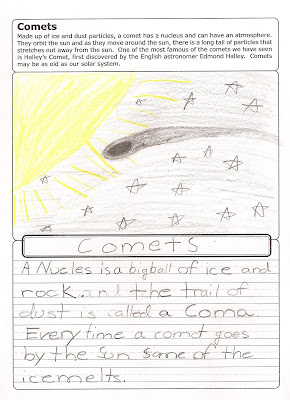 Comets
Made up of ice and dust particles, a comet has a nucleus and can have an atmosphere.
They orbit the sun and as they move around the sun, there is a long tail of particles that
stretches out away from the sun. One of the most famous of the comets we have seen
is Halley's Comet, first discovered by the English astronomer Edmond Halley. Comets
may be as old as our solar system.
Comets
A Nucles is a big ball of ice and
rock. and the trail of
dust is called a Coma.
Every time a comet goes
by the Sun Some of the
ice melts.